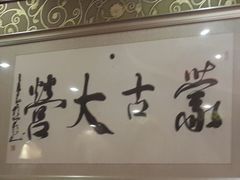 蒙古大营